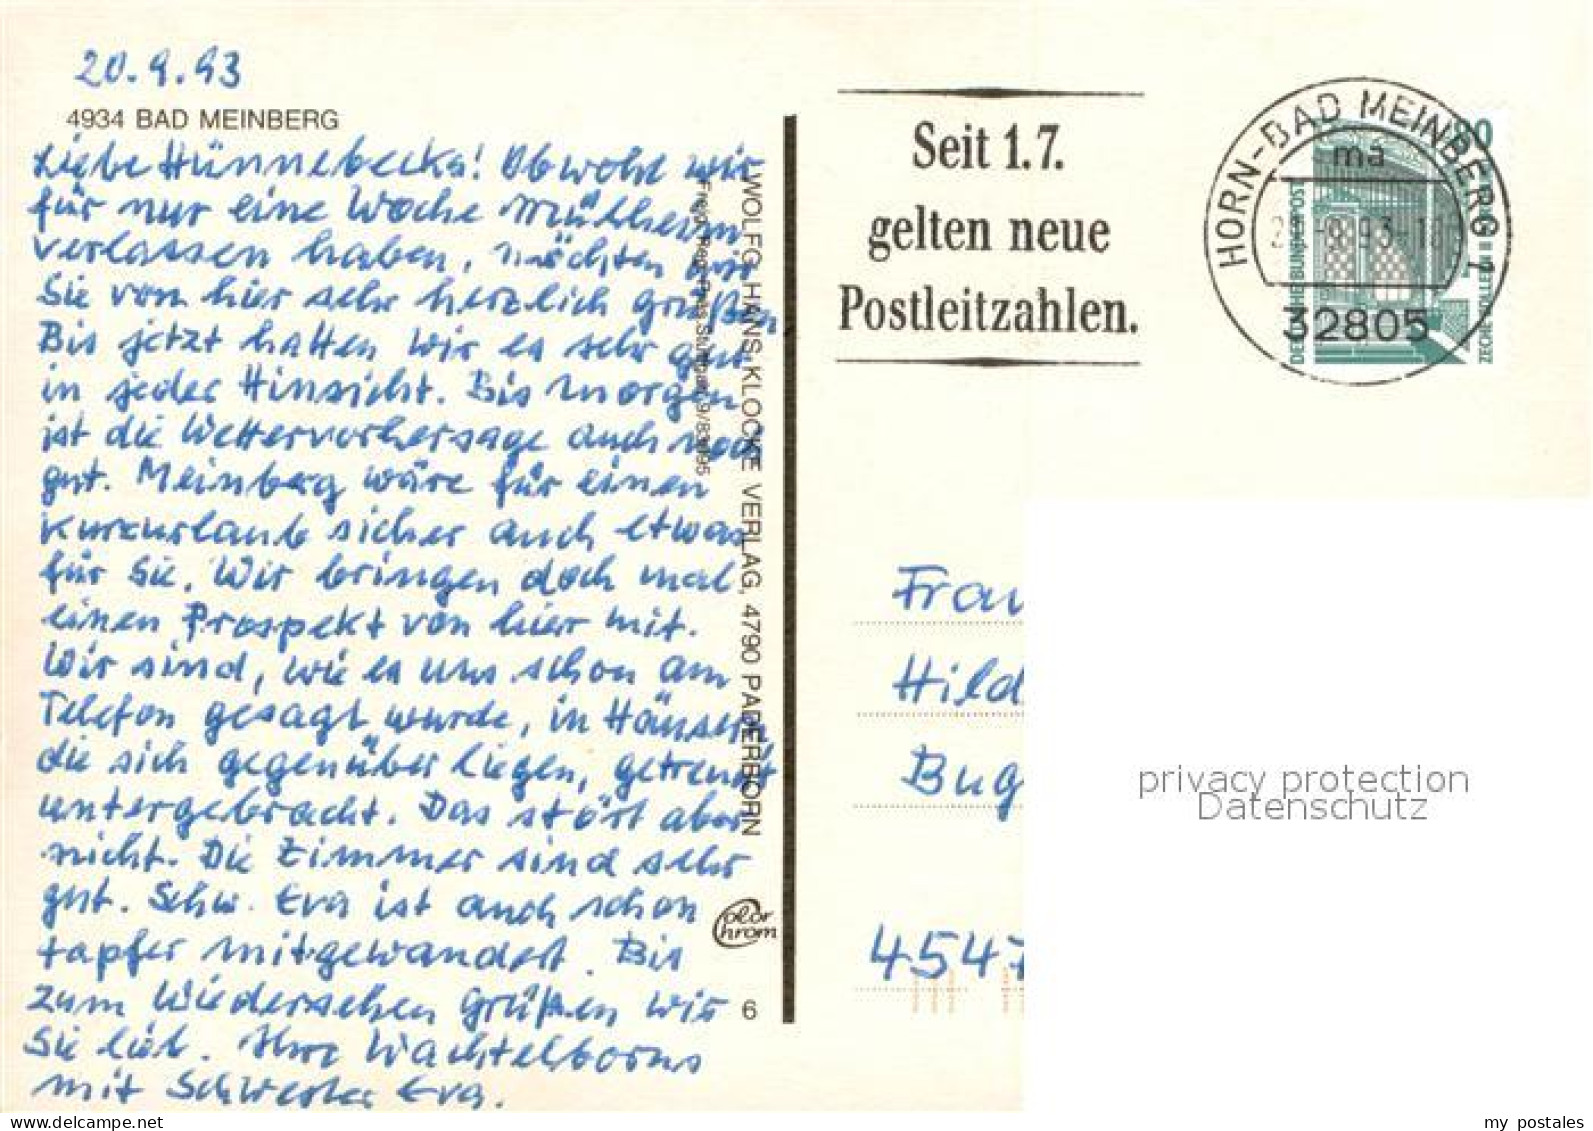 20.9.93
4934 BAD MEINBERG
Liebe Hünnebecks! Obwohl wir
für nur eine Woche Mülheim
verlassen haben, möchten wir
Sie von hier sehr herzlich grüßen.
Bis jetzt hatten wir es sehr gut
in jeder Hinsicht. Bis morgen
ist die Wettervorhersage auch noch
gut. Meinberg wäre für einen
Kurzurlaub sicher auch etwas
für Sie. Wir bringen doch mal
einen Prospekt von hier mit.
Wir sind, wie es uns schon am
Telefon gesagt wurde, in Häusern
die sich gegenüber liegen, getrennt
untergebracht. Das stört aber
nicht. Die Zimmer sind sehr
gut. Schw. Eva ist auch schon
tapfer mitgewandert. Bis
zum Wiedersehen grüßen wir
Sie lieb. Ihre Wachtelborns
mit Schwester Eva.
WOLFG. HANS KLOCKE VERLAG, 4790 PADERBORN
Color
Chrom
6
Seit 1.7.
gelten neue
Postleitzahlen.
HORN-BAD MEINBERG 1
ma
93-18
32805
DEUTSCHE BUNDESPOST
ZECHE ZOLLERN II
Frau
Hild
Bug
4547
privacy protection
Datenschutz
www.delcampe.net
my postales